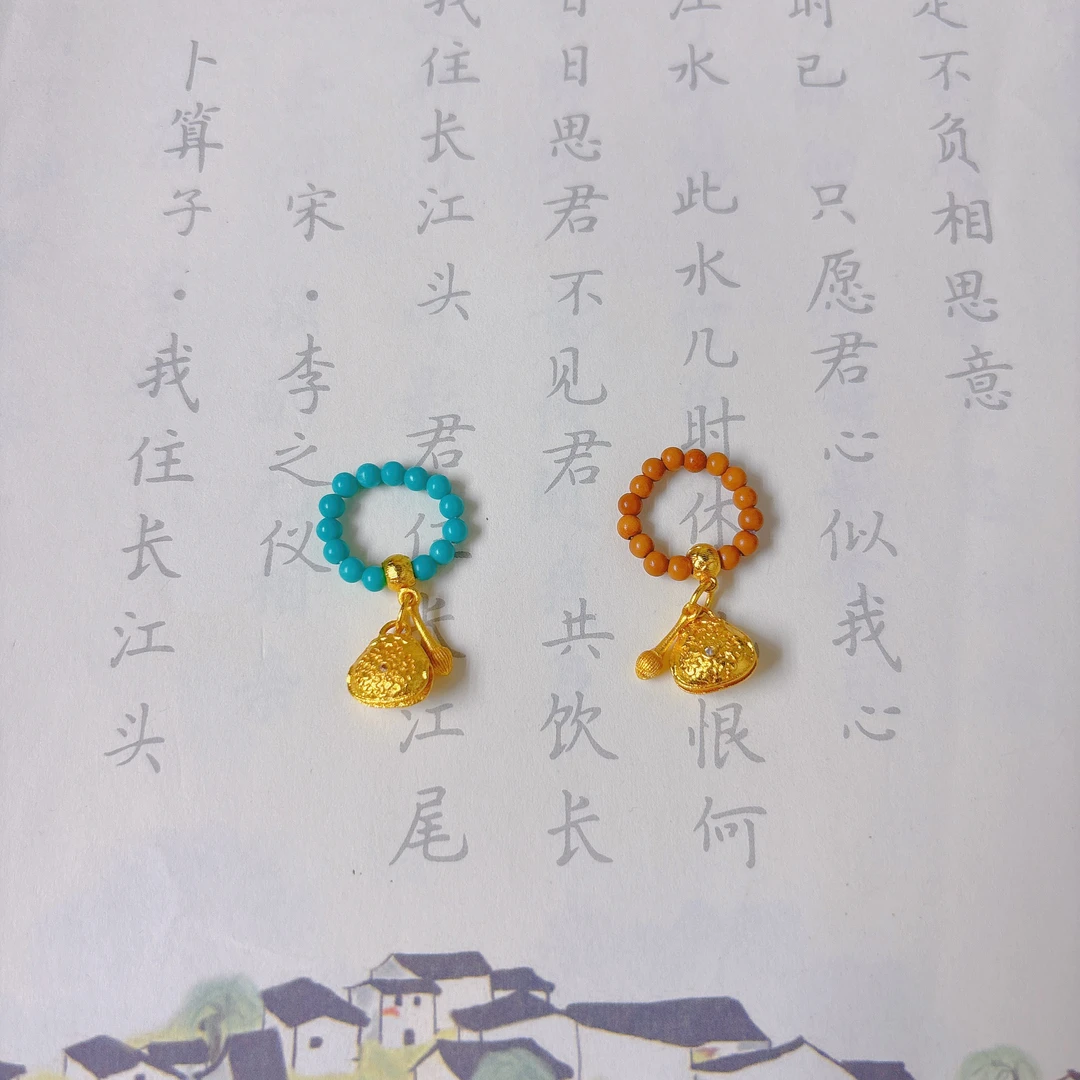 卜算子·我住长江头
宋·李之仪
我住长江头 君住长江尾
日日思君不见君 共饮长
江水 此水几时休 恨何
时已 只愿君心似我心
定不负相思意